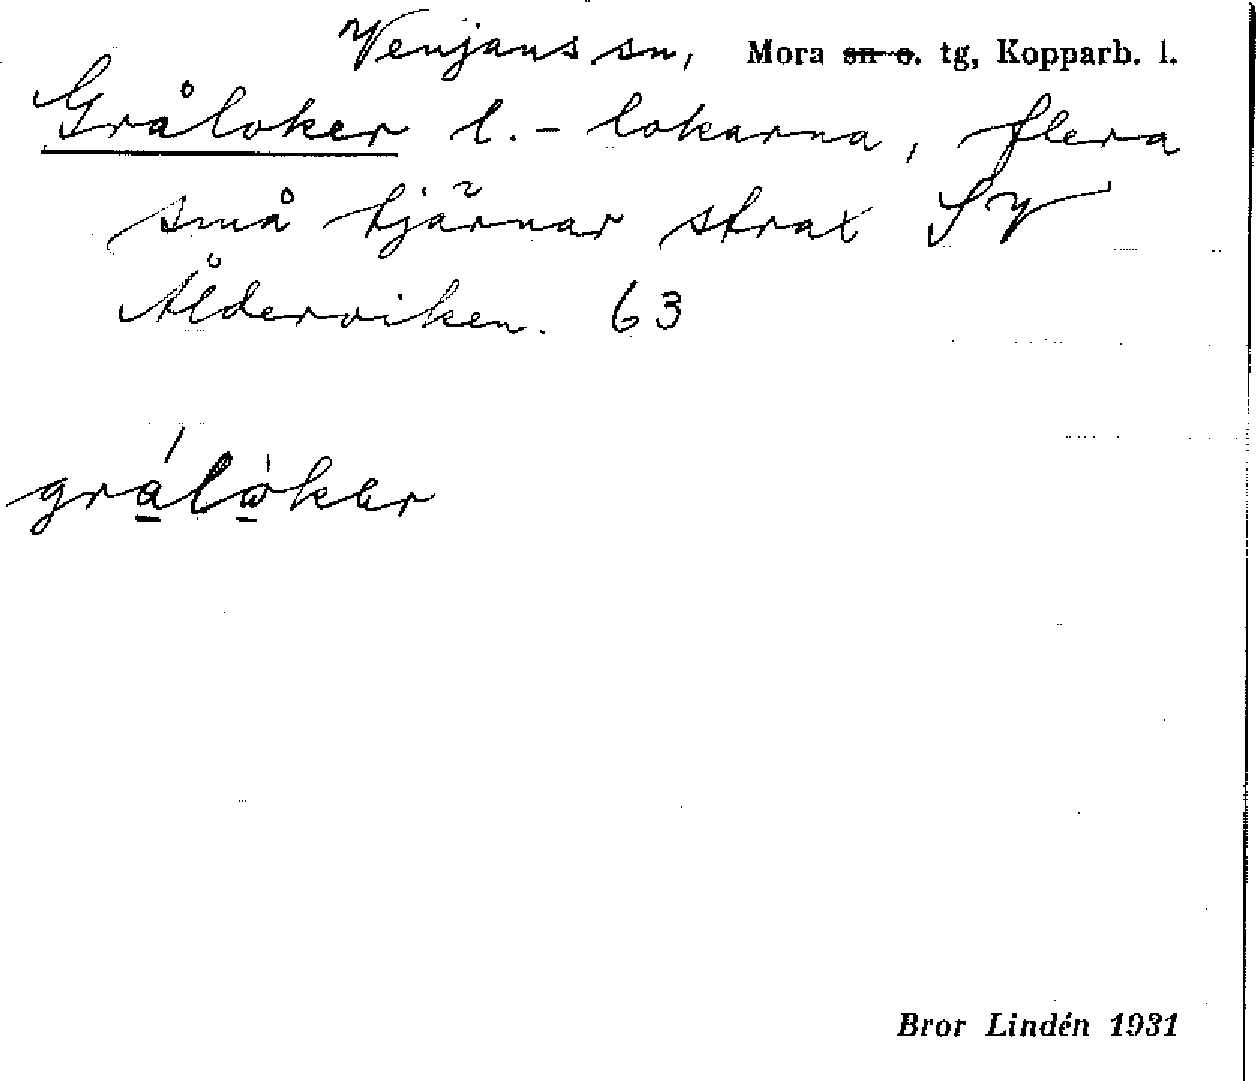 Venjans sn, Mora sn o. tg, Kopparb. l.
Gråloker l. - lokarna, flera
små tjärnar strax SV
Ålderviken. 63
grálòker
Bror Lindén 1931